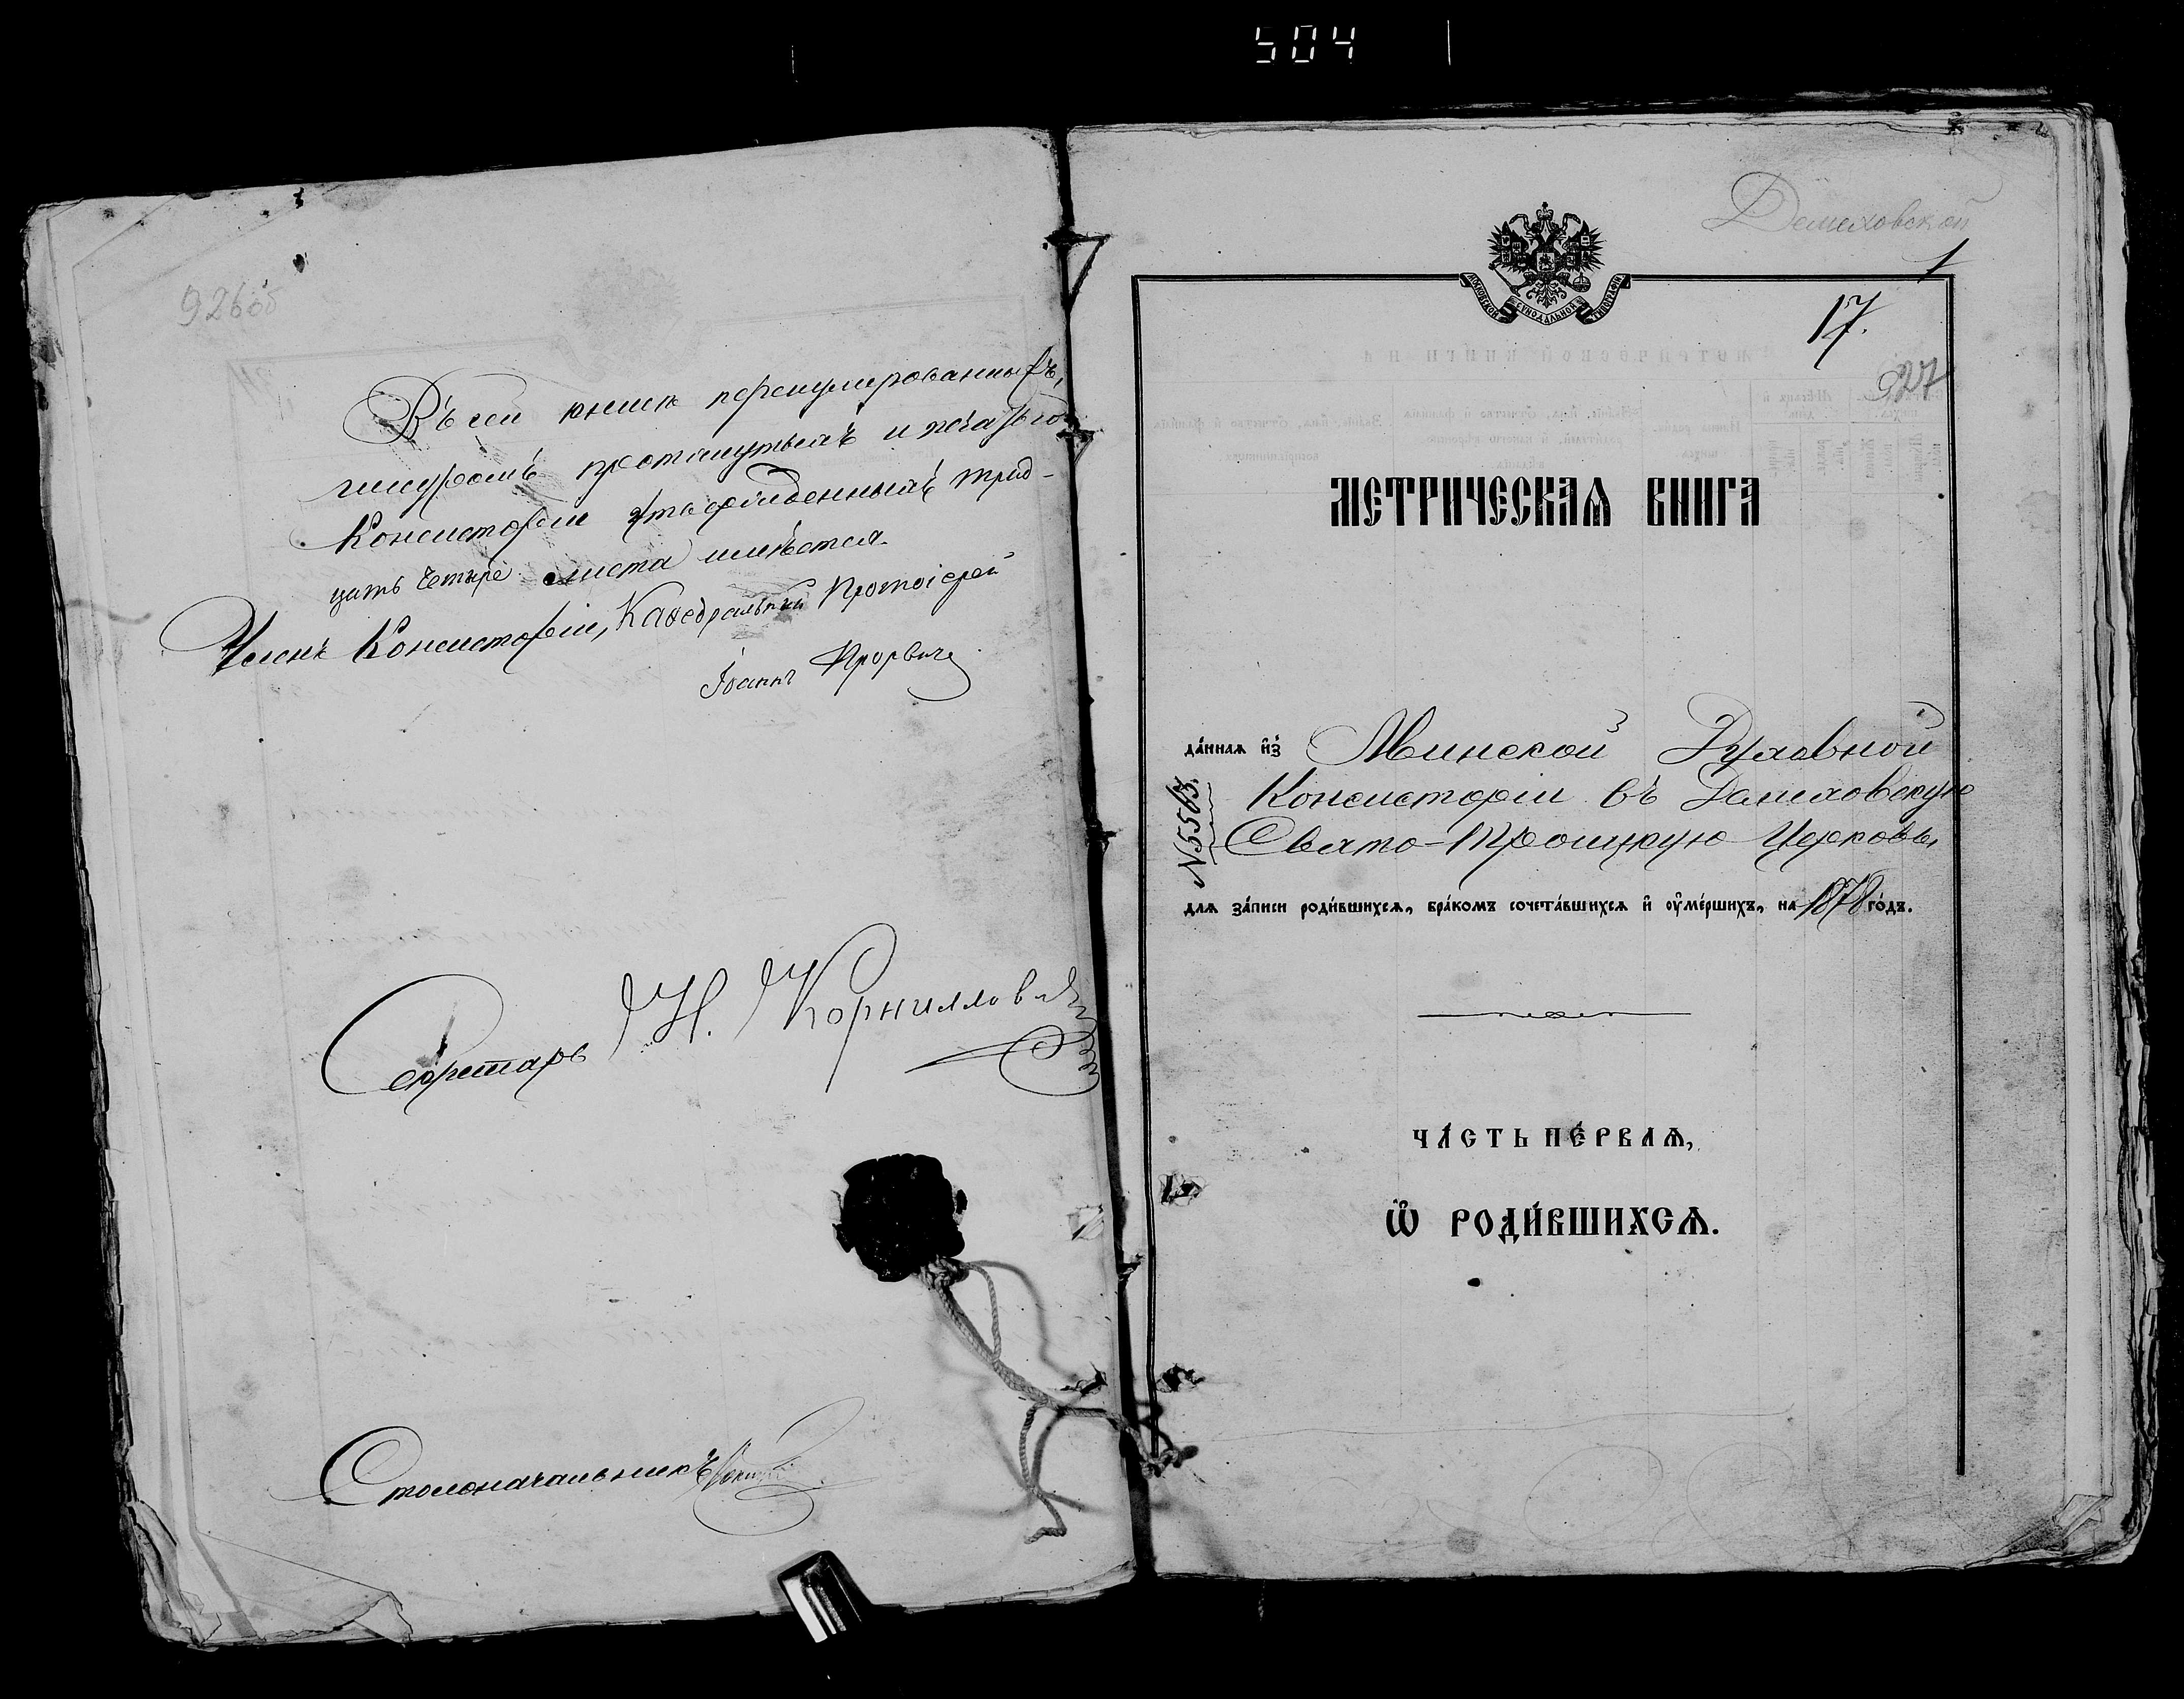 504
926об
Въ сей книгѣ перенумерованныхъ,
шнуромъ протянутыхъ и печатью
Консисторіи утвержденныхъ трид-
цать четыре листа имѣется.
Членъ Консисторіи, Каѳедральный Протоіерей
Іоаннъ
Секретарь Н. Корниллов
Столоначальникъ
Демеховской
1
МОСКОВСКОЙ СѴНОДАЛЬНОЙ ТИПОГРАФІИ
17.
927
МЕТРИЧЕСКАѦ КНИГА
да́ннаѧ и҆з̾ Минской Духовной
Консисторіи въ Демеховскую
Свято-Троицкую Церковь,
№5563.
длѧ за́писи роди́вшихсѧ, бра́комъ сочета́вшихсѧ и҆ ᲂу҆ме́ршихъ, на 1878 го́дъ.
ЧА́СТЬ ПЕ́РВАѦ,
Ѽ РОДИ́ВШИХСѦ.